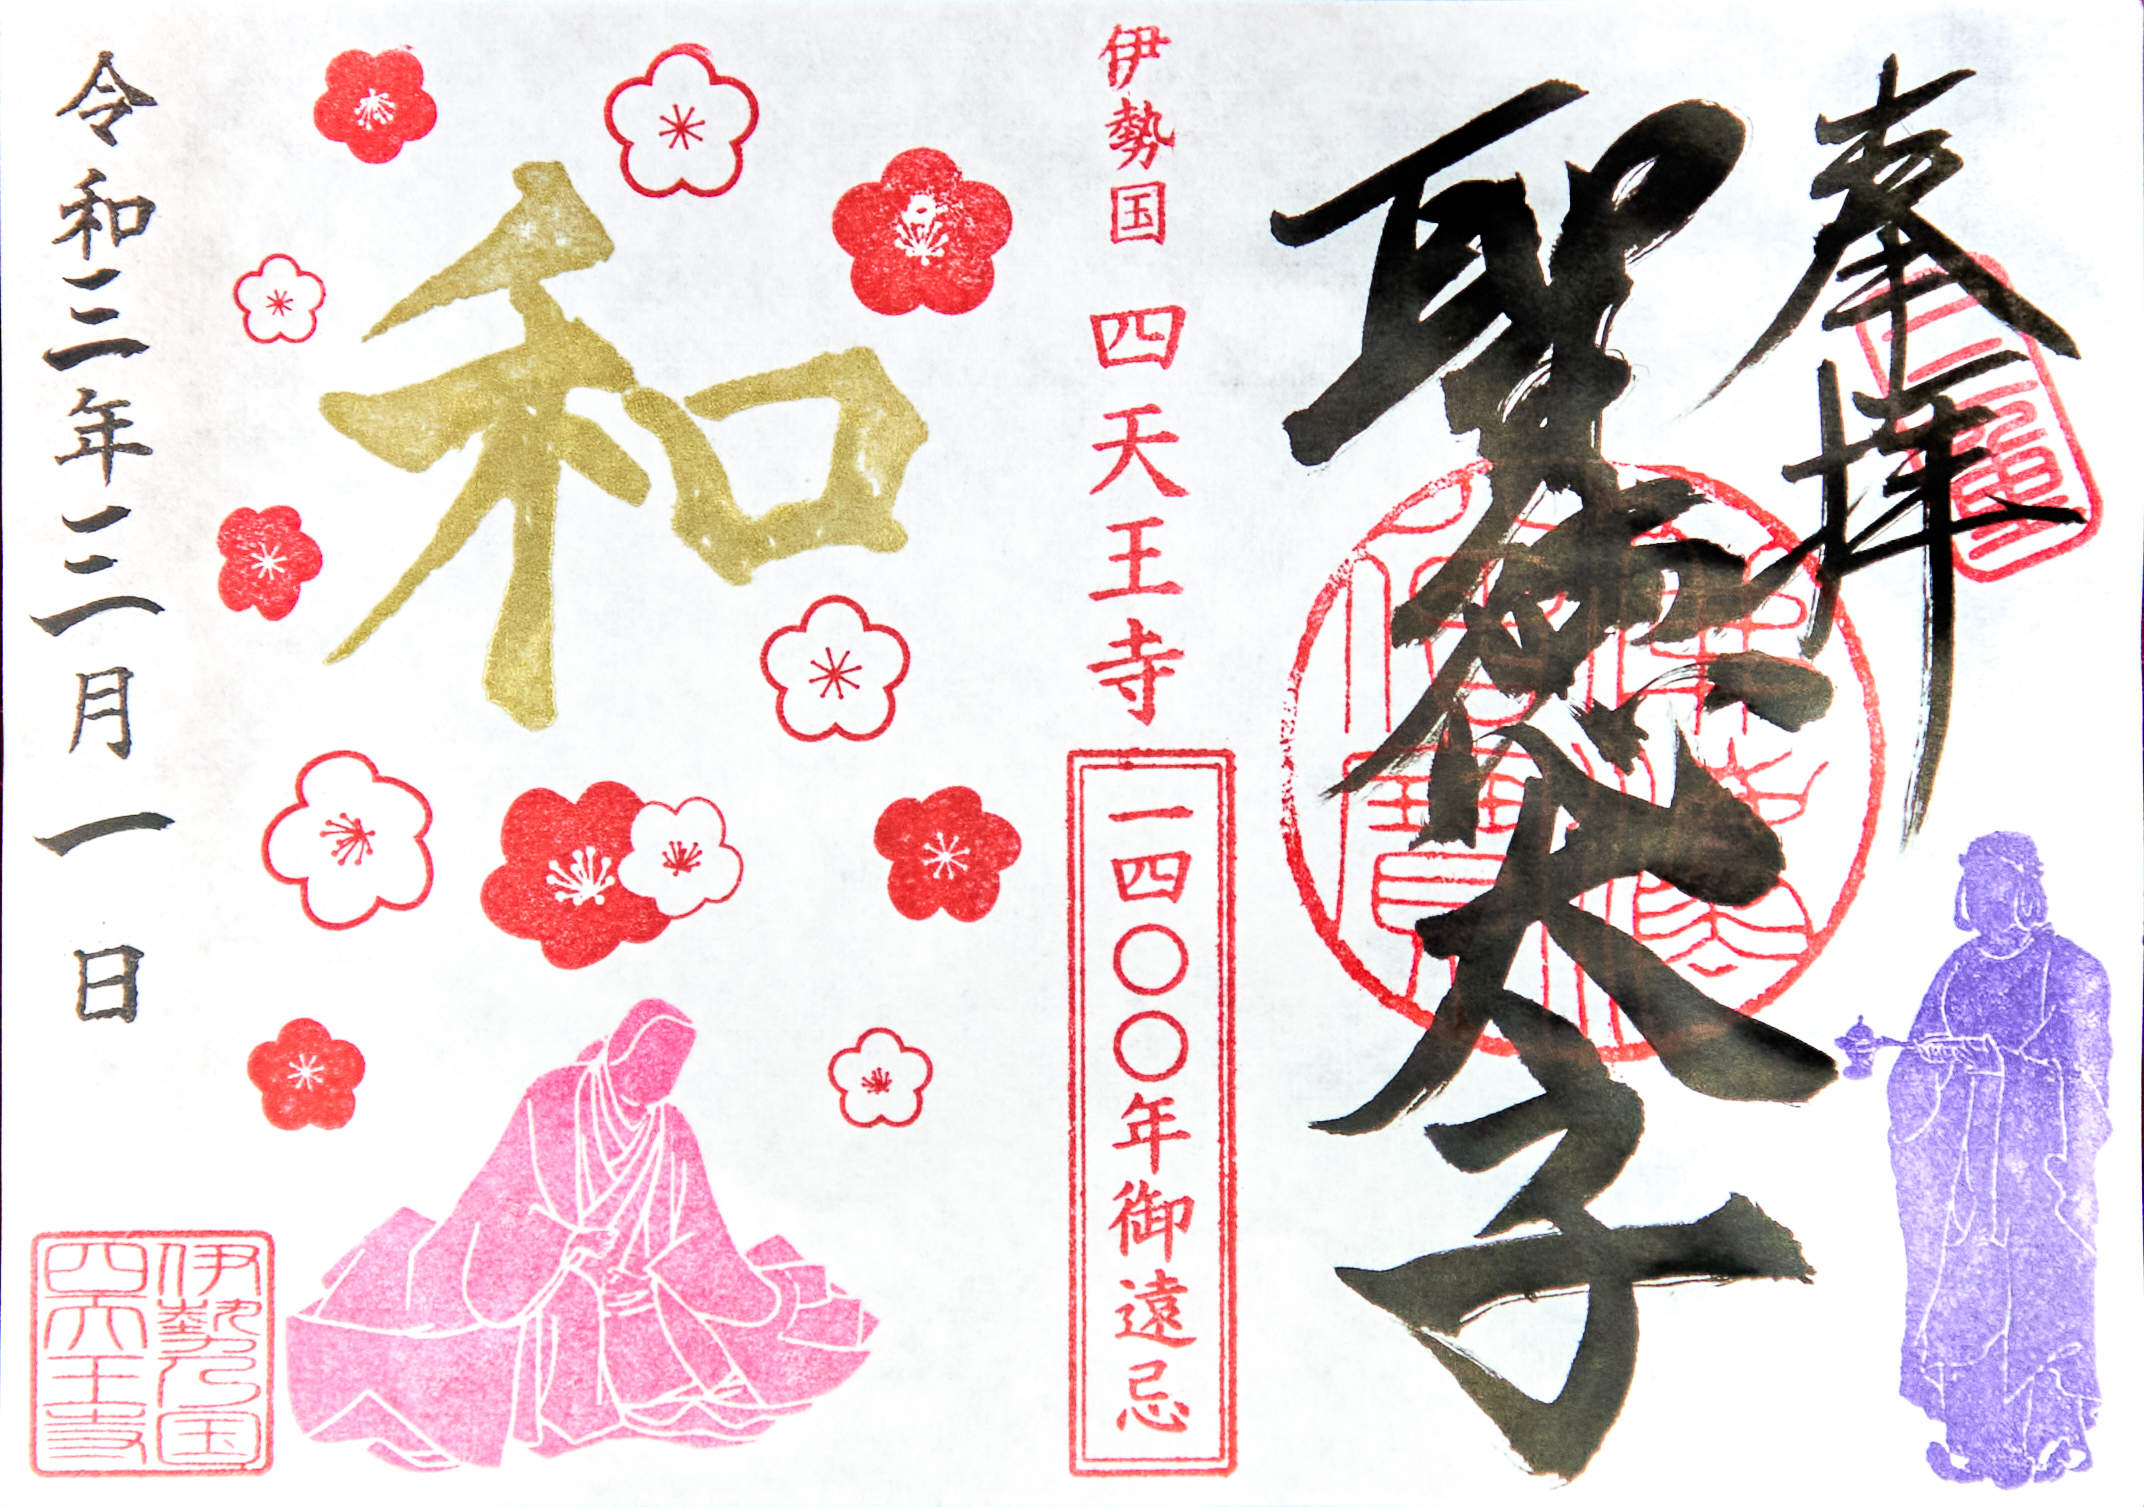 奉拝
聖徳太子
伊勢国 四天王寺
一四〇〇年御遠忌
和
令和三年三月一日
伊勢乃国
四天王寺